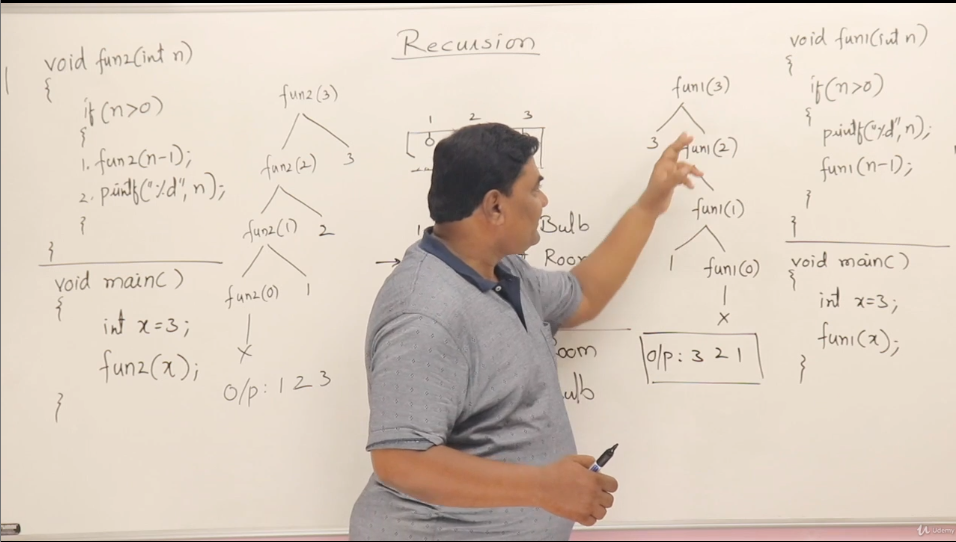 Recursion
void fun2(int n)
{
if(n>0)
{
1. fun2(n-1);
2. printf("%d",n);
}
}
void main()
{
int x=3;
fun2(x);
}
fun2(3)
fun2(2) 3
fun2(1) 2
fun2(0) 1
X
O/p: 1 2 3
1 2 3
Bulb
Room
fun1(3)
3 fun1(2)
fun1(1)
1 fun1(0)
X
O/p: 3 2 1
void fun1(int n)
{
if(n>0)
{
printf("%d",n);
fun1(n-1);
}
}
void main()
{
int x=3;
fun1(x);
}
Udemy